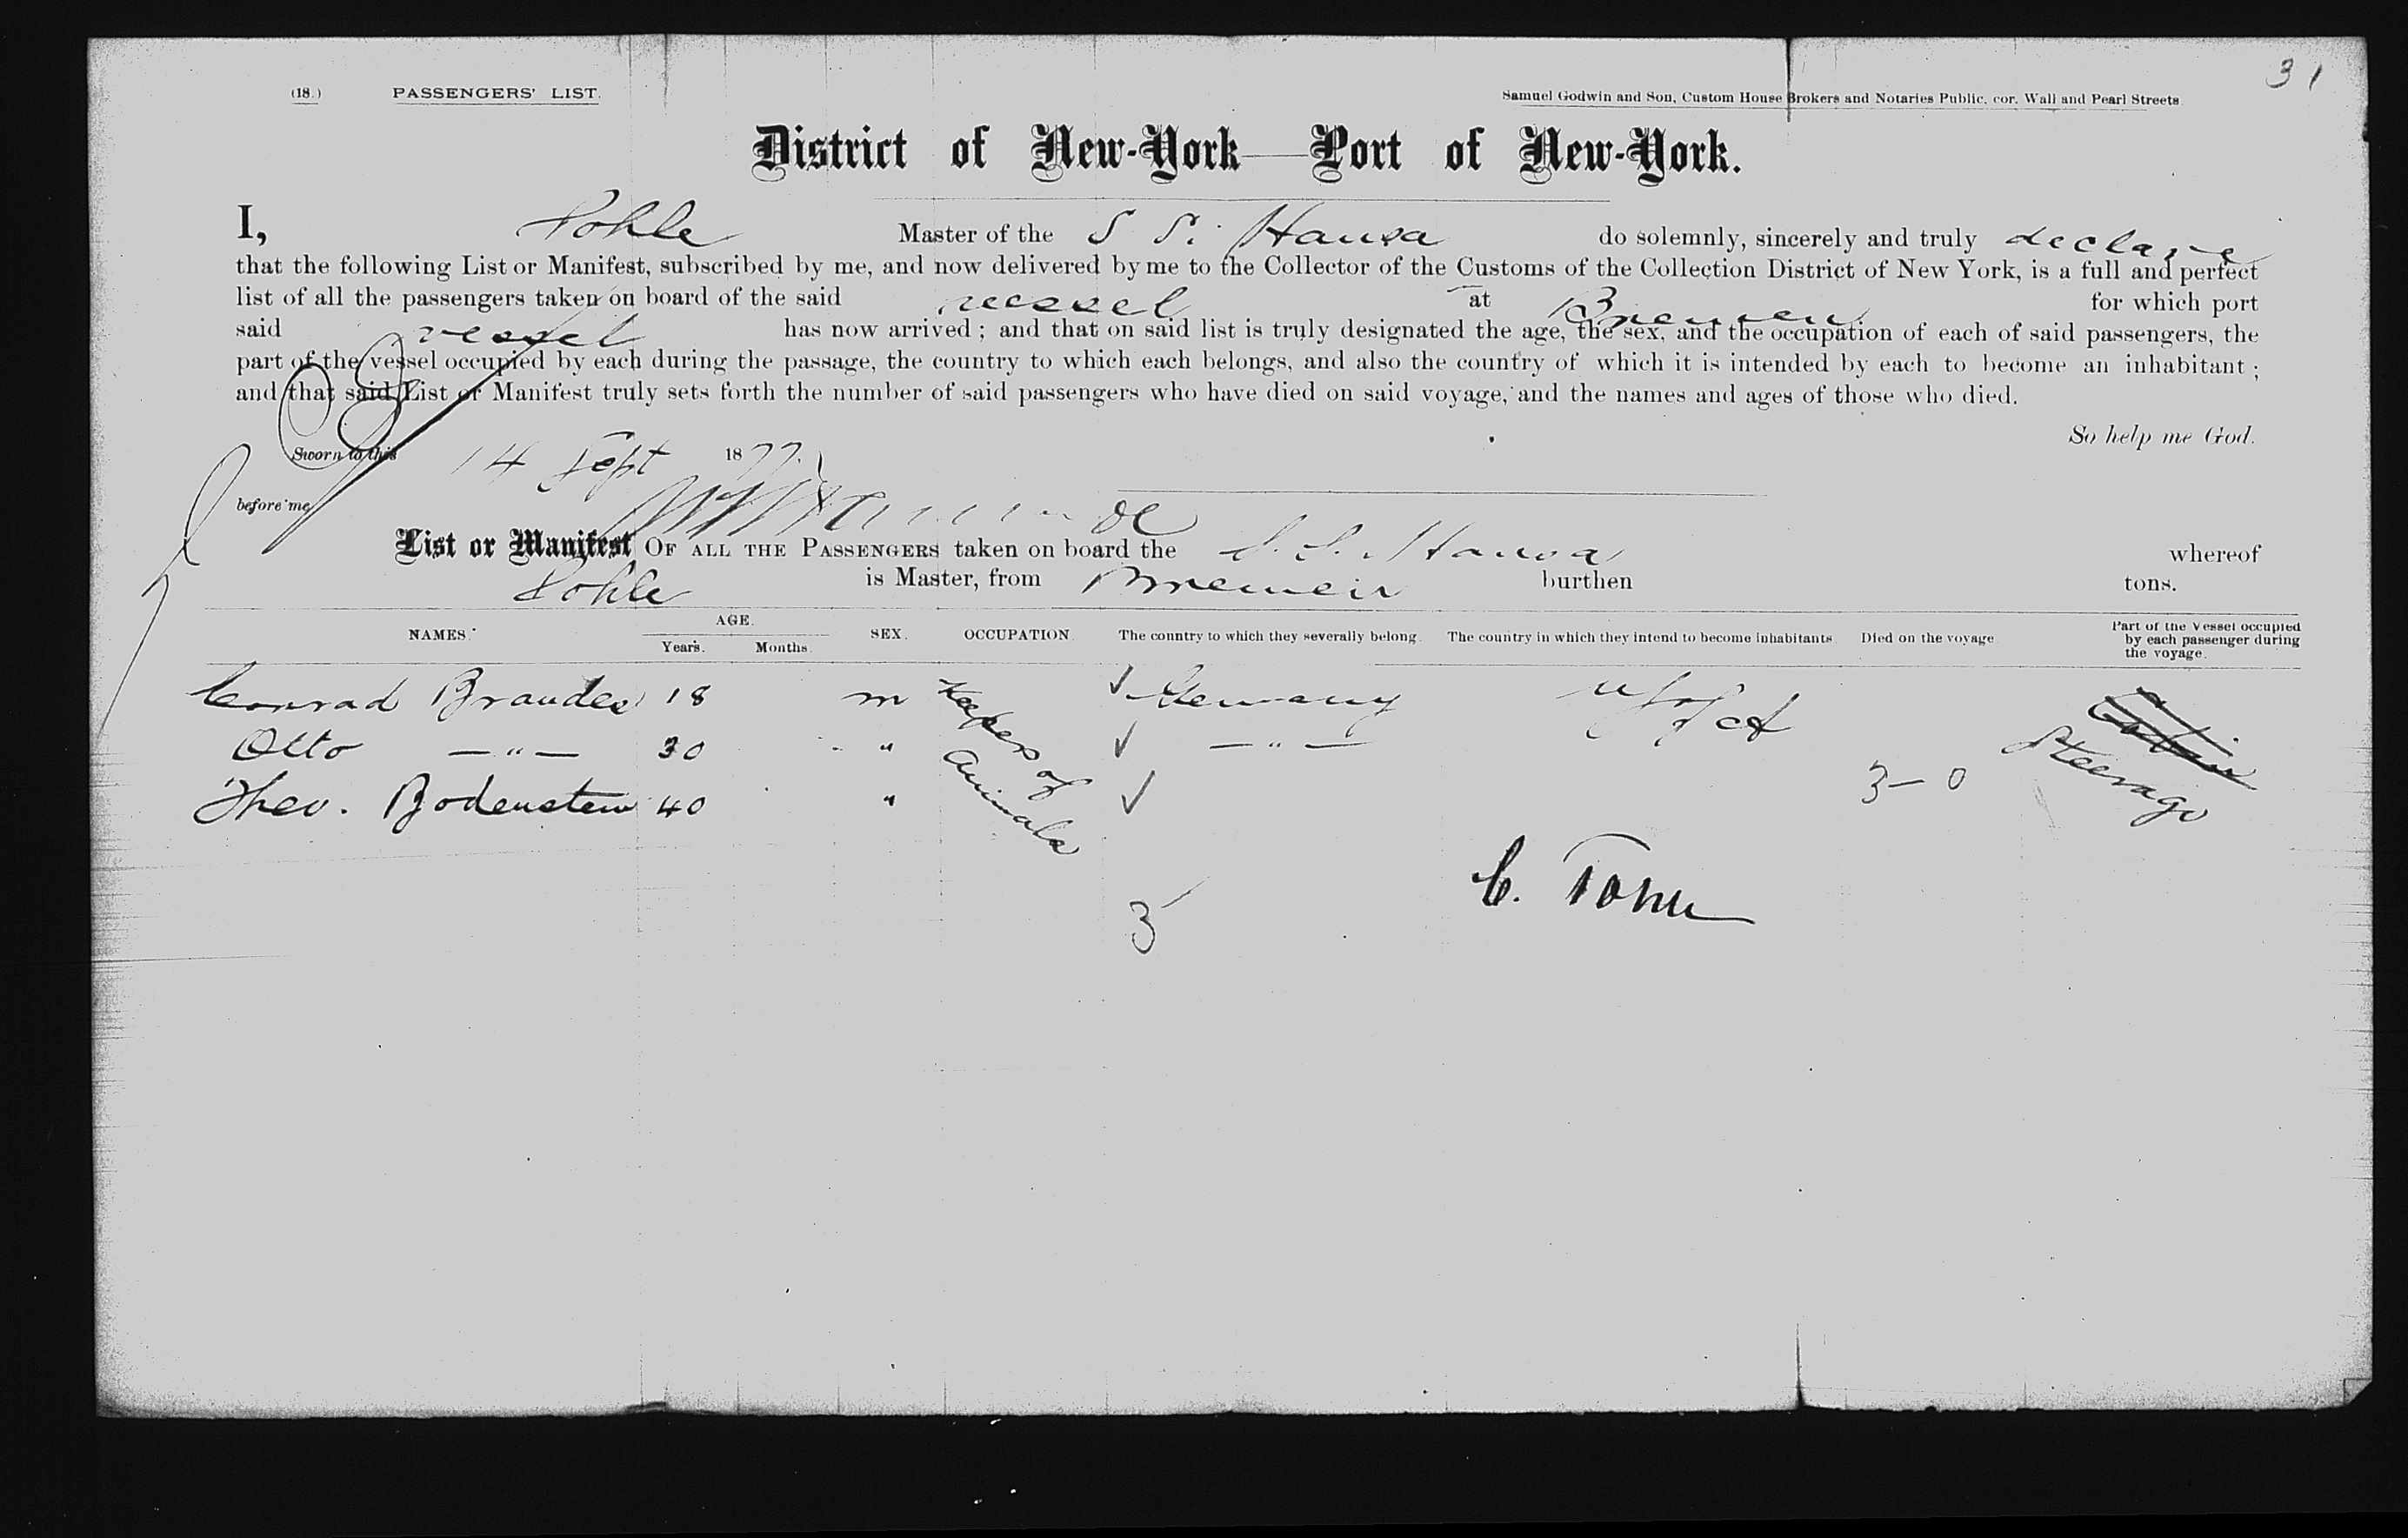 31
(18.) PASSENGERS' LIST. Samuel Godwin and Son, Custom House Brokers and Notaries Public, cor. Wall and Pearl Streets
District of New-York—Port of New-York.
I, Pohle Master of the S S. Hansa do solemnly, sincerely and truly declare
that the following List or Manifest, subscribed by me, and now delivered by me to the Collector of the Customs of the Collection District of New York, is a full and perfect
list of all the passengers taken on board of the said vessel at Bremen for which port
said vessel has now arrived; and that on said list is truly designated the age, the sex, and the occupation of each of said passengers, the
part of the vessel occupied by each during the passage, the country to which each belongs, and also the country of which it is intended by each to become an inhabitant;
and that said List or Manifest truly sets forth the number of said passengers who have died on said voyage, and the names and ages of those who died.
So help me God.
Sworn to this 14 Sept 1877.
before me
List or Manifest OF ALL THE PASSENGERS taken on board the S. S. Hansa whereof
Pohle is Master, from Bremen burthen tons.
NAMES. AGE. Years. Months. SEX. OCCUPATION. The country to which they severally belong. The country in which they intend to become inhabitants. Died on the voyage. Part of the Vessel occupied by each passenger during the voyage.
Conrad Brandes 18 m Keepers of Animals ✓ Germany U S of A Cabin
Otto —"— 30 " ✓ —"— Steerage
Theo. Bodenstein 40 " ✓ 3 – 0
3
C. Pohle